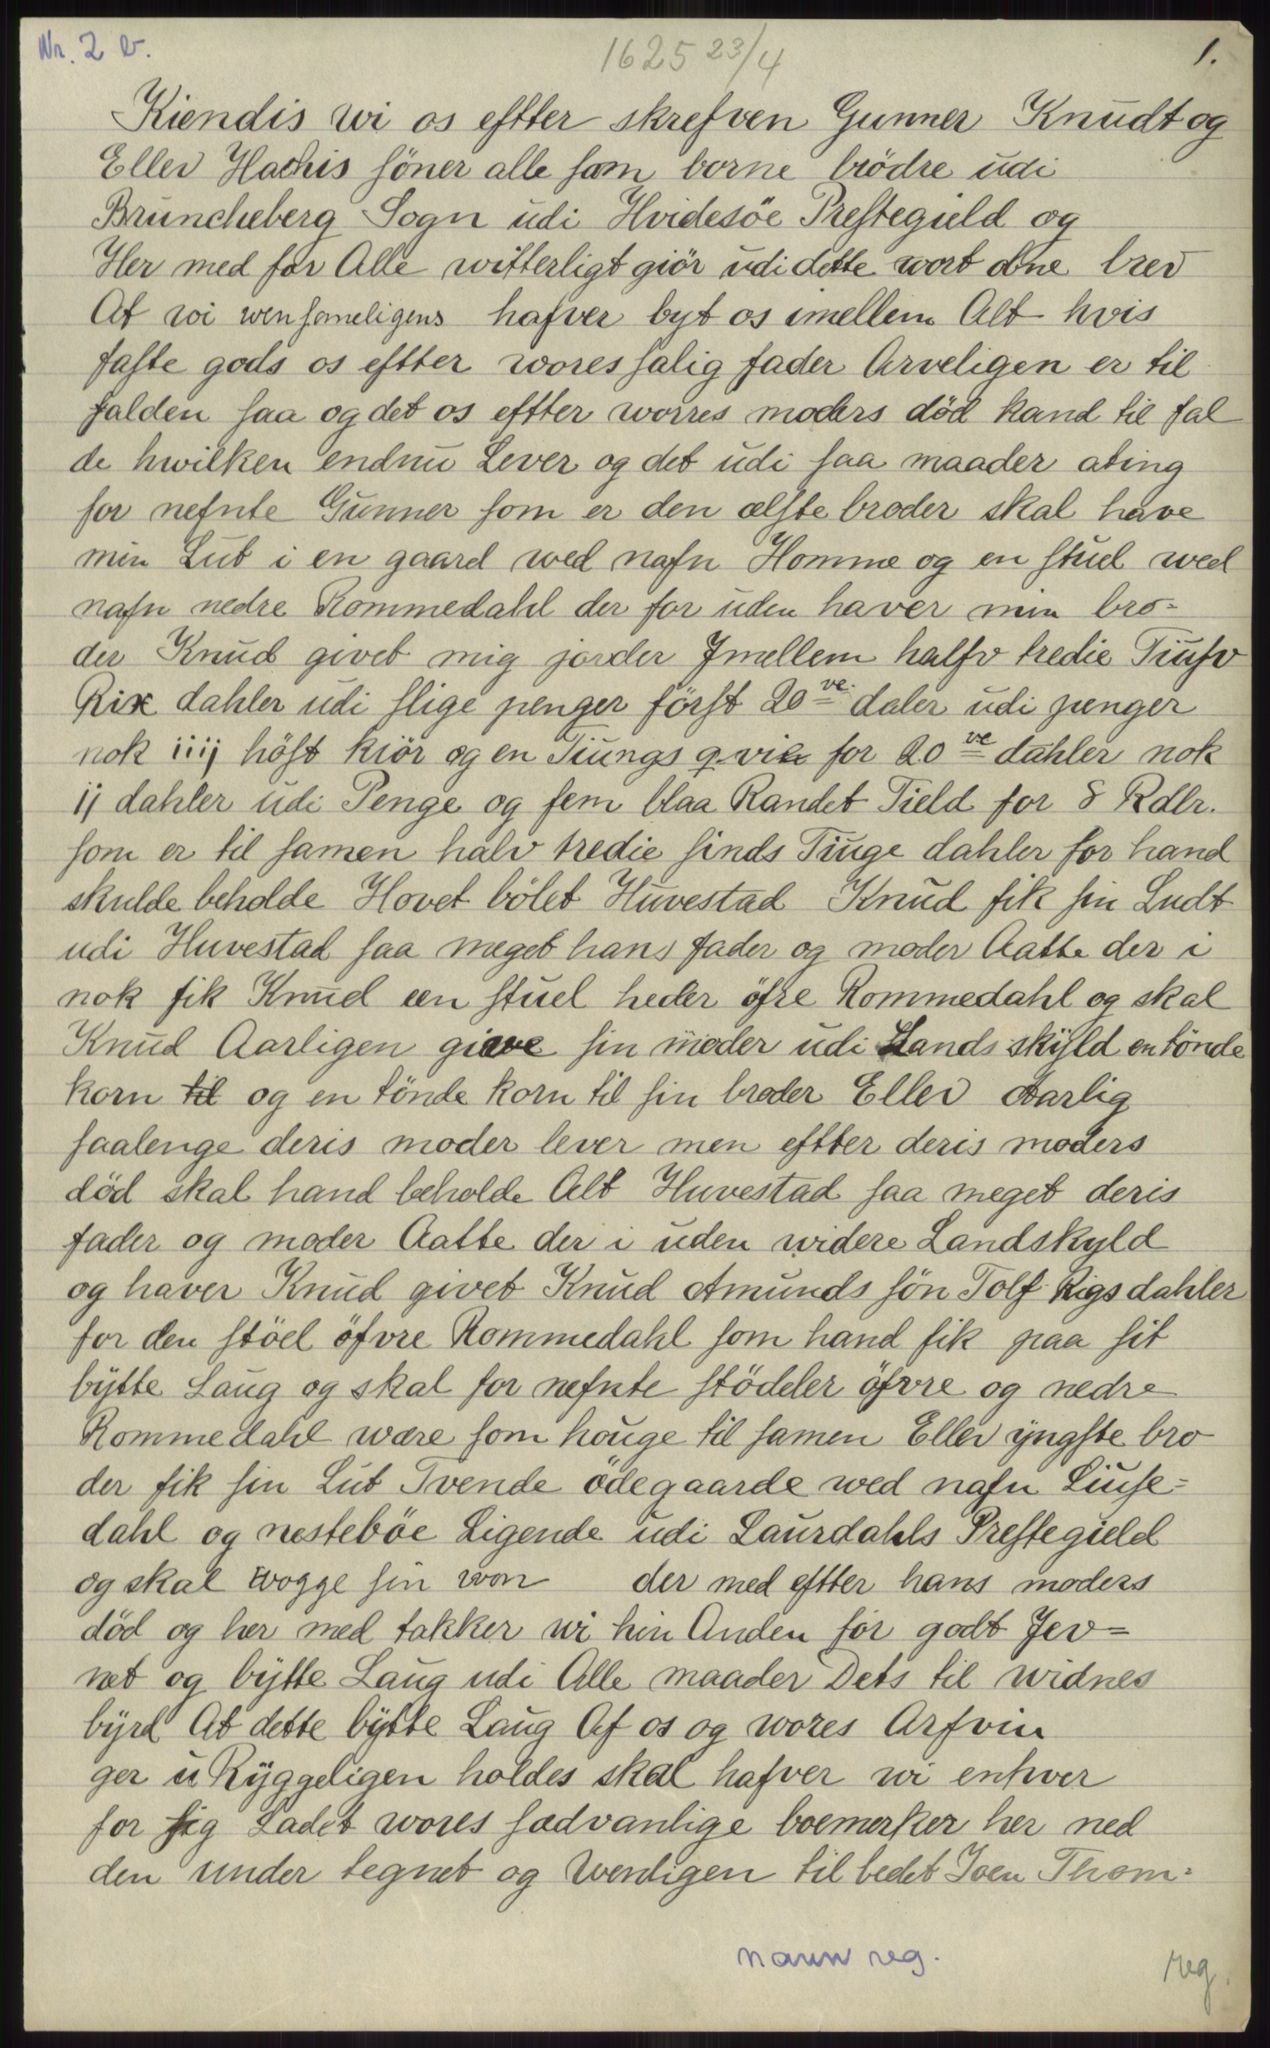 Nr. 2 b.
1625 23/4
1.
Kiendis wi os efter skrefven Gunner Knudt og
Ellev Hachis söner alle som borne brödre udi
Bruncheberg Sogn udi Hvidesöe Prestegield og
Her med for Alle witterligt giör udi dette wort obne brev
At wi wensomeligens hafver byt os imellem Alt hvis
faste gods os efter wores salig fader Arveligen er til
falden saa og det os efter worres moders död kand til fal
de hwilken endnu Lever og det udi saa maader ating
for nefnte Gunner som er den ælste broder skal have
min Lut i en gaard wed nafn Homme og en stuel wed
nafn nedre Rommedahl der for uden haver min bro-
der Knud givet mig jorder Jmellem halfv tredie Tiufv
Rix dahler udi slige penger först 20ve daler udi penger
nok iiij höft kiör og en Tiungs qvie for 20ve dahler nok
ij dahler udi Penge og fem blaa Randet Tield for 8 Rdlr.
som er til samen halv tredie sinds Tiuge dahler for hand
skulde beholde Hovet bölet Huvestad Knud fik sin Ludt
udi Huvestad saa meget hans fader og moder Aatte der i
nok fik Knud een stuel heder öfre Rommedahl og skal
Knud Aarligen giave sin moder udi Lands skyld en tönde
korn til og en tönde korn til sin broder Ellev Aarlig
saalenge deris moder lever men efter deris moders
död skal hand beholde Alt Huvestad saa meget deris
fader og moder Aatte der i uden widere Landskyld
og haver Knud givet Knud Amunds sön Tolf Rigsdahler
for den stöel öfvre Rommedahl som hand fik paa sit
bytte Laug og skal for nefnte stödeler öfvre og nedre
Rommedahl wære som houge til samen Ellev yngste bro
der fik sin Lut Tvende ödegaarde wed nafn Liuse-
dahl og nestebøe Ligende udi Laurdahls Prestegield
og skal wogge sin won der med efter hans moders
död og her med takker wi hin Anden for godt Jev=
net og bytte Laug udi Alle maader Dets til widnes
byrd At dette bytte Laug Af os og wores Arfvin
ger u Ryggeligen holdes skal hafver wi enhver
for sig Ladet wores sædvanlige boemerker her ned
den under tegnet og wenligen til bedet Joen Thom-
navn reg.
reg.